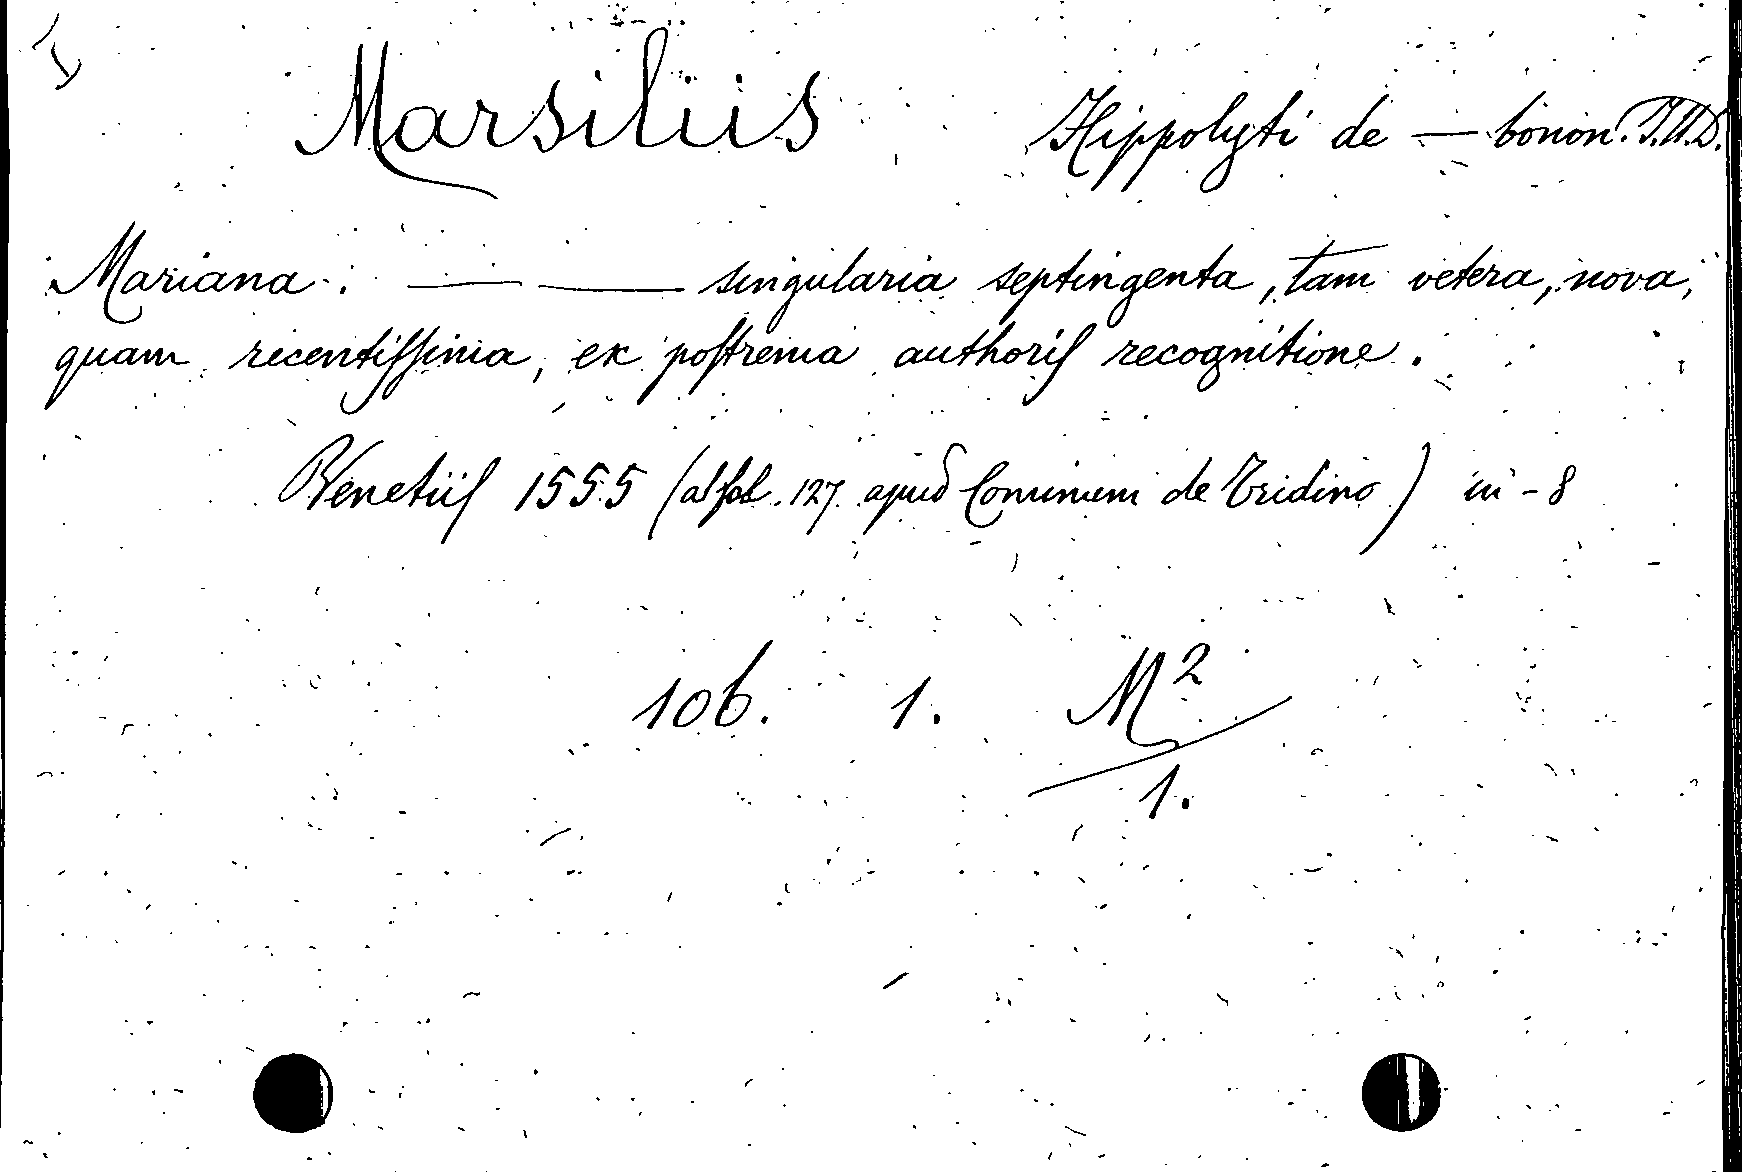 Marsiliis Hippolyti de — bonon. J.U.D.
Mariana: — — singularia septingenta, tam vetera, nova,
quam recentissima, ex postrema authoris recognitione.
Venetiis 1555 (al fol. 127. apud Cominum de Tridino) in-8
106. 1. M²
1.